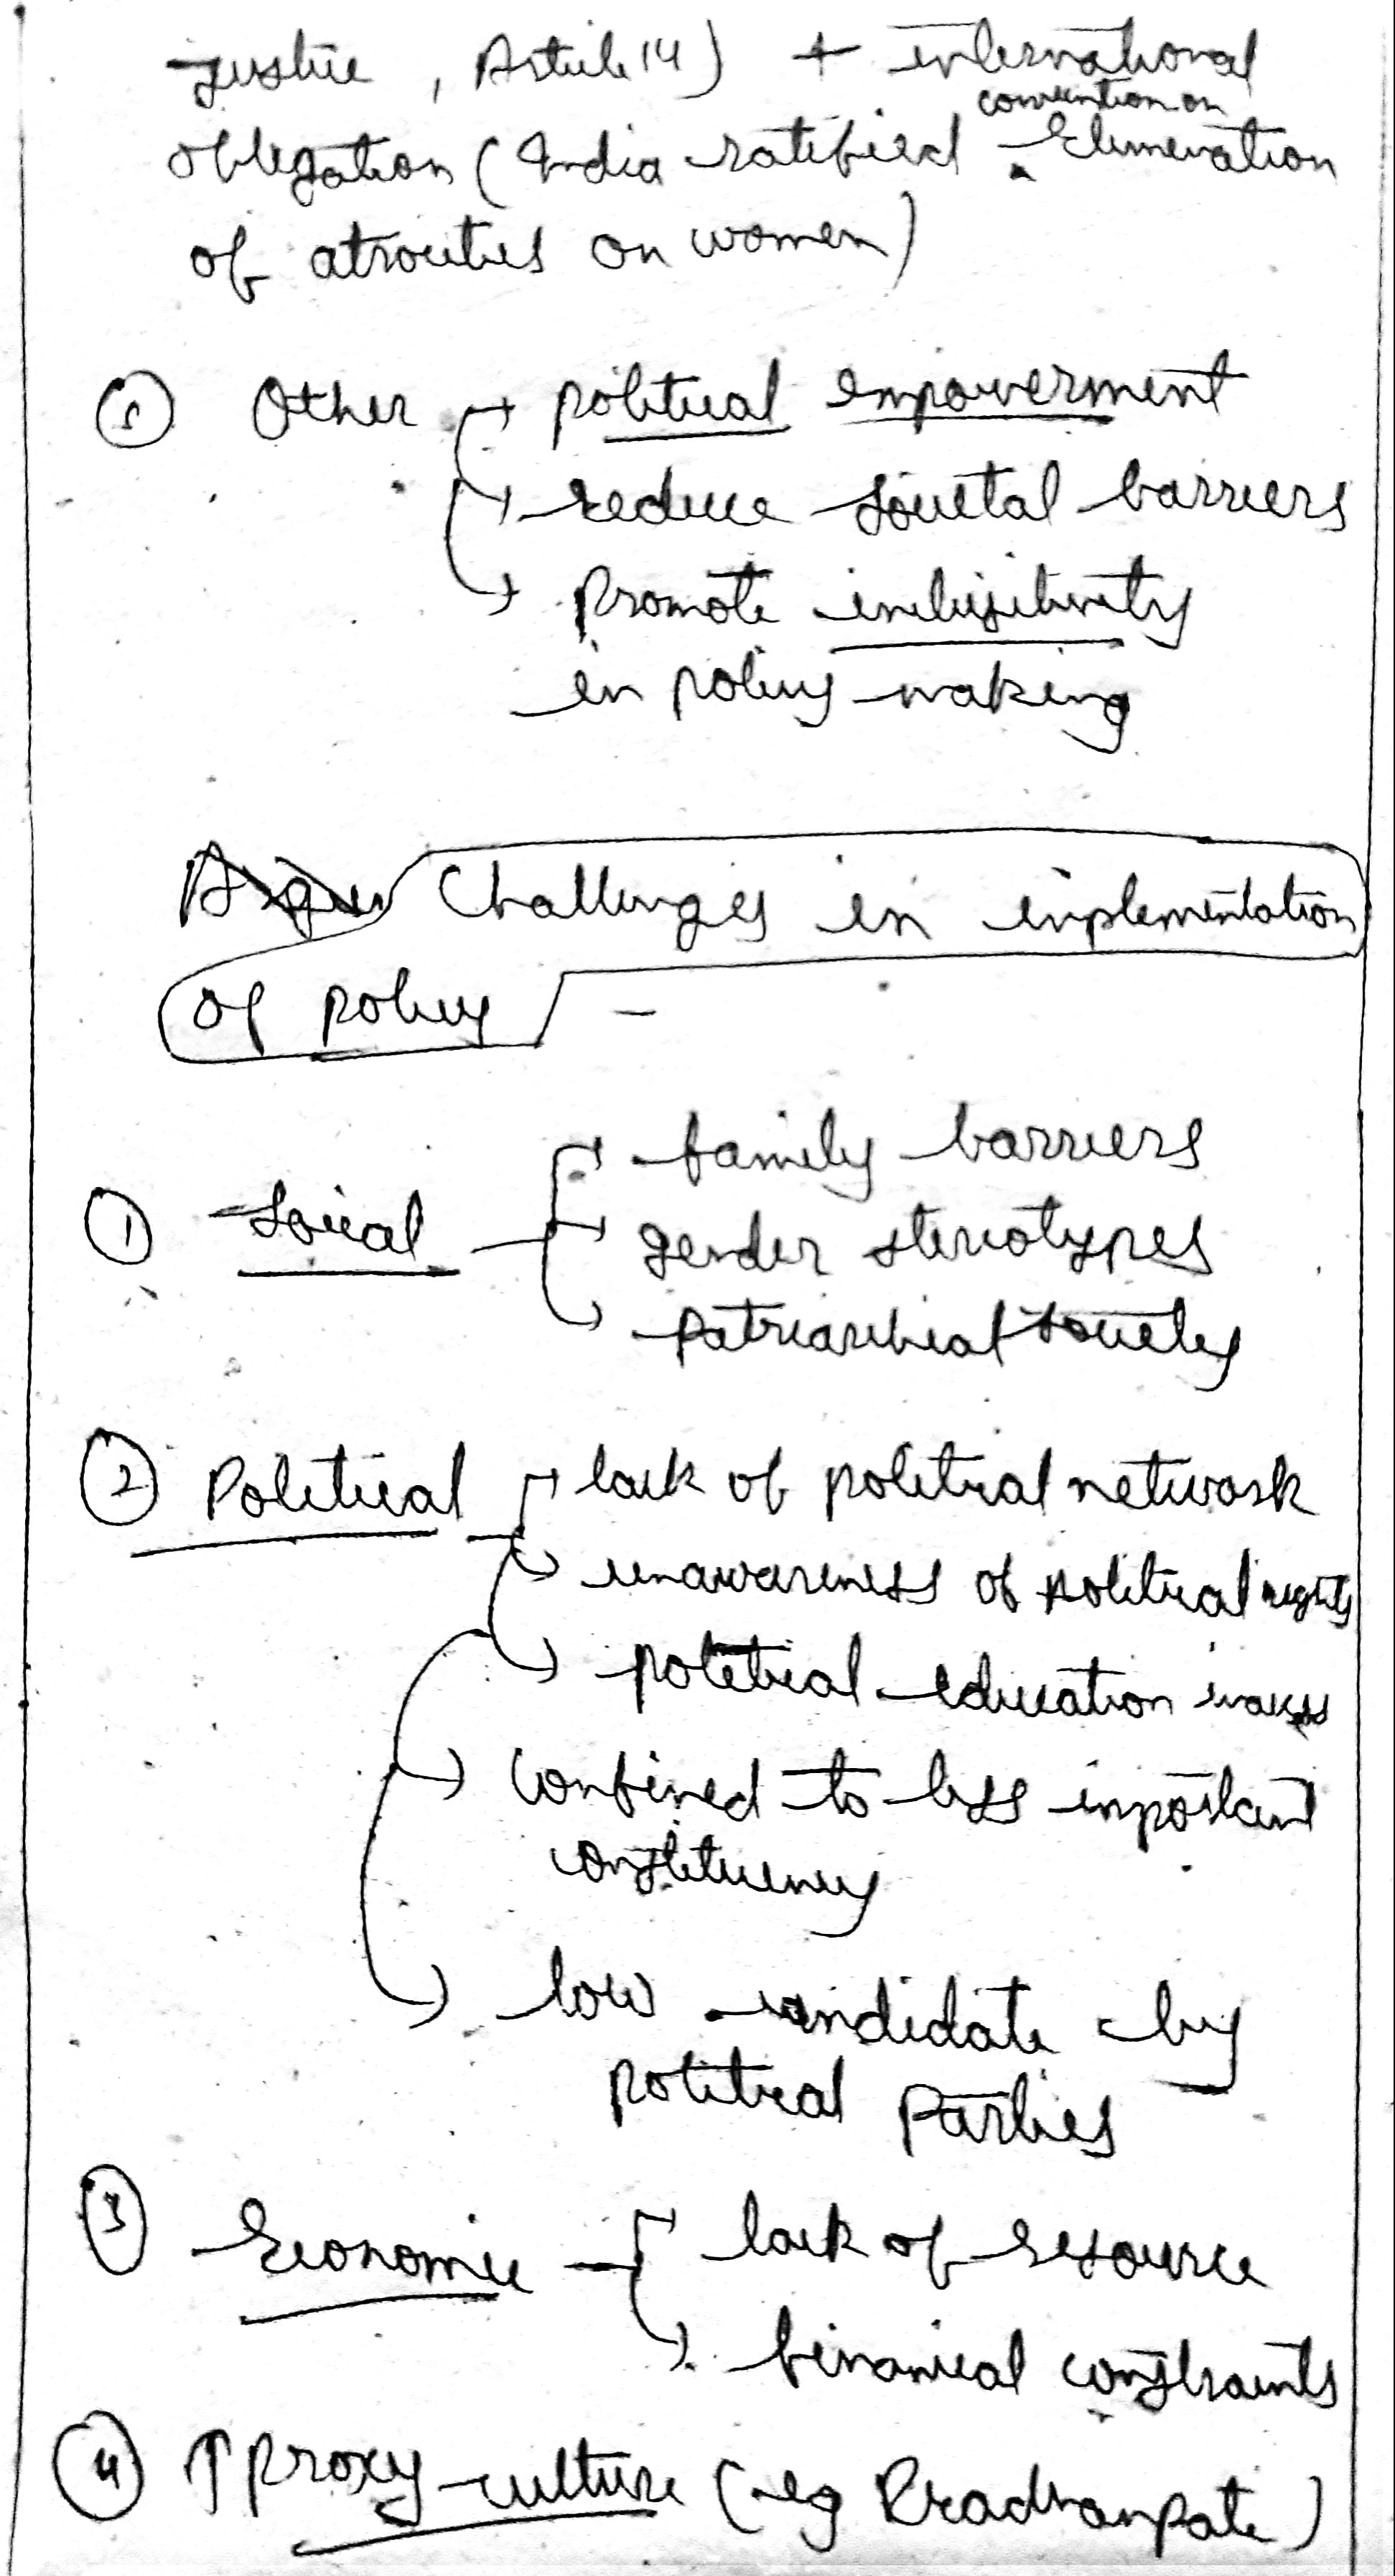 justice , Article 14) + international
convention on
obligation ( India ratified Elimenation
of atrocities on women)
5 Other → political empowerment
→ reduce societal barriers
→ Promote
in policy making
Challenges in implementation
of policy -
1 Social → family barriers
→ gender stereotypes
→ patriarchial society
2 Political → lack of political network
→ unawareness of political rights
→ political education
→ Confined to less important
constituency
→ low candidate by
political parties
3 Economic → lack of resource
→ financial constraints
4 ↑ proxy culture (eg Pradhanpate)